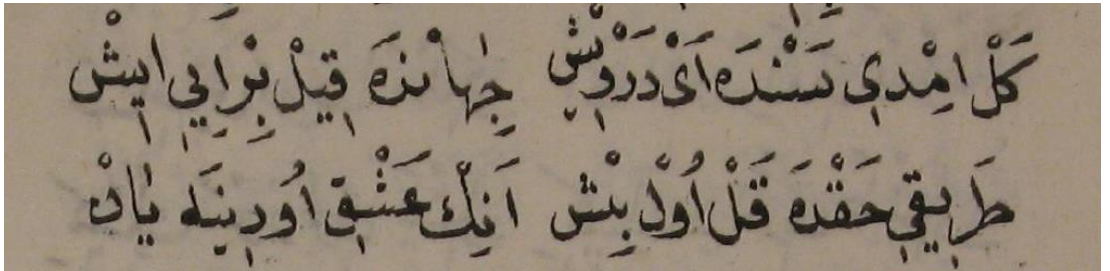 كَلْ اِمْدِي سَنْدَه اَیْ دَرْوِیشْ جِهانْدَه قِیلْ بِرْ اَیِی اِیشْ
طَرِیقِ حَقْدَه قَلْ اُوْلْ بِشْ اَنِكْ عَشْقِ اُودِینَه یَانْ